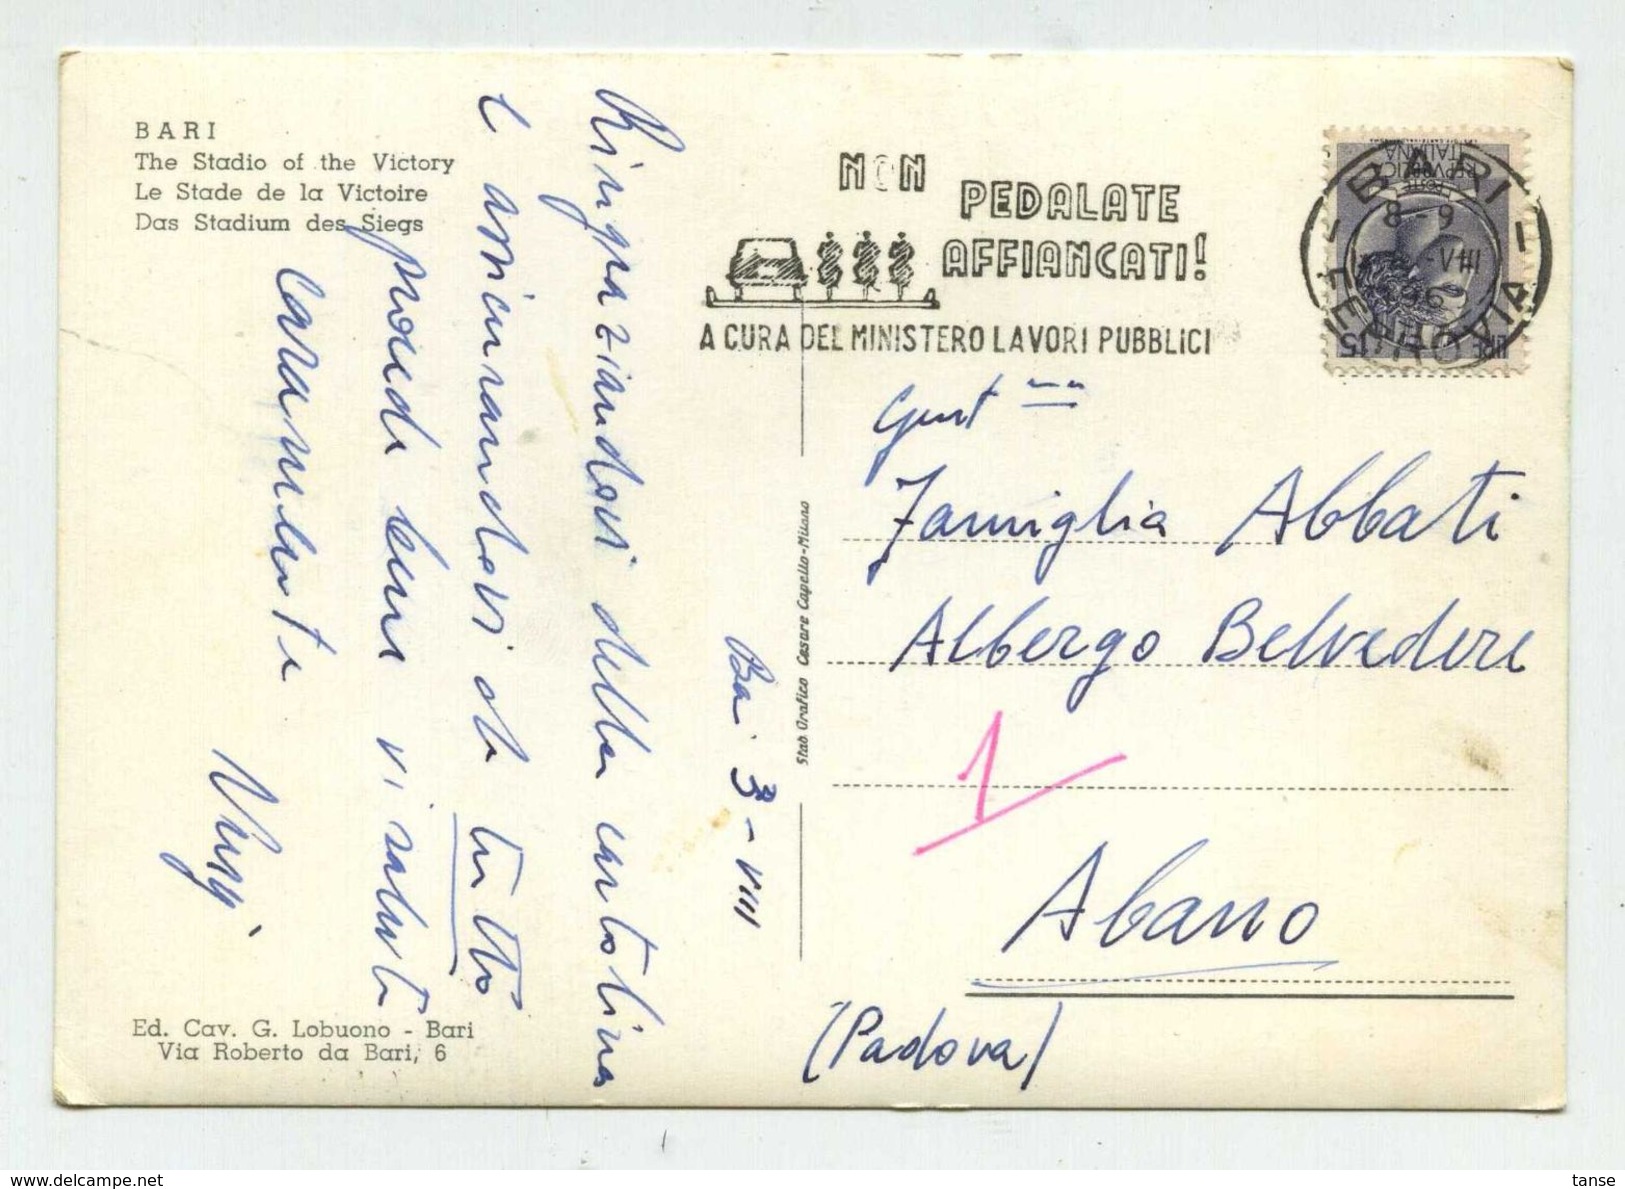 BARI
The Stadio of the Victory
Le Stade de la Victoire
Das Stadium des Siegs
Ringraziandovi della cartolina
e assicurandovi che tutto
procede bene vi saluto
caramente
Ba. 3-VIII
Ed. Cav. G. Lobuono - Bari
Via Roberto da Bari, 6
Stab. Grafico Cesare Capello-Milano
NON PEDALATE
AFFIANCATI!
A CURA DEL MINISTERO LAVORI PUBBLICI
BARI
8-9
-VIII
196
FERROVIA
REPVBBLICA
ITALIANA
POSTE
LIRE 15
Famiglia Abbati
Albergo Belvedere
1
Abano
(Padova)
delcampe.net
tanse